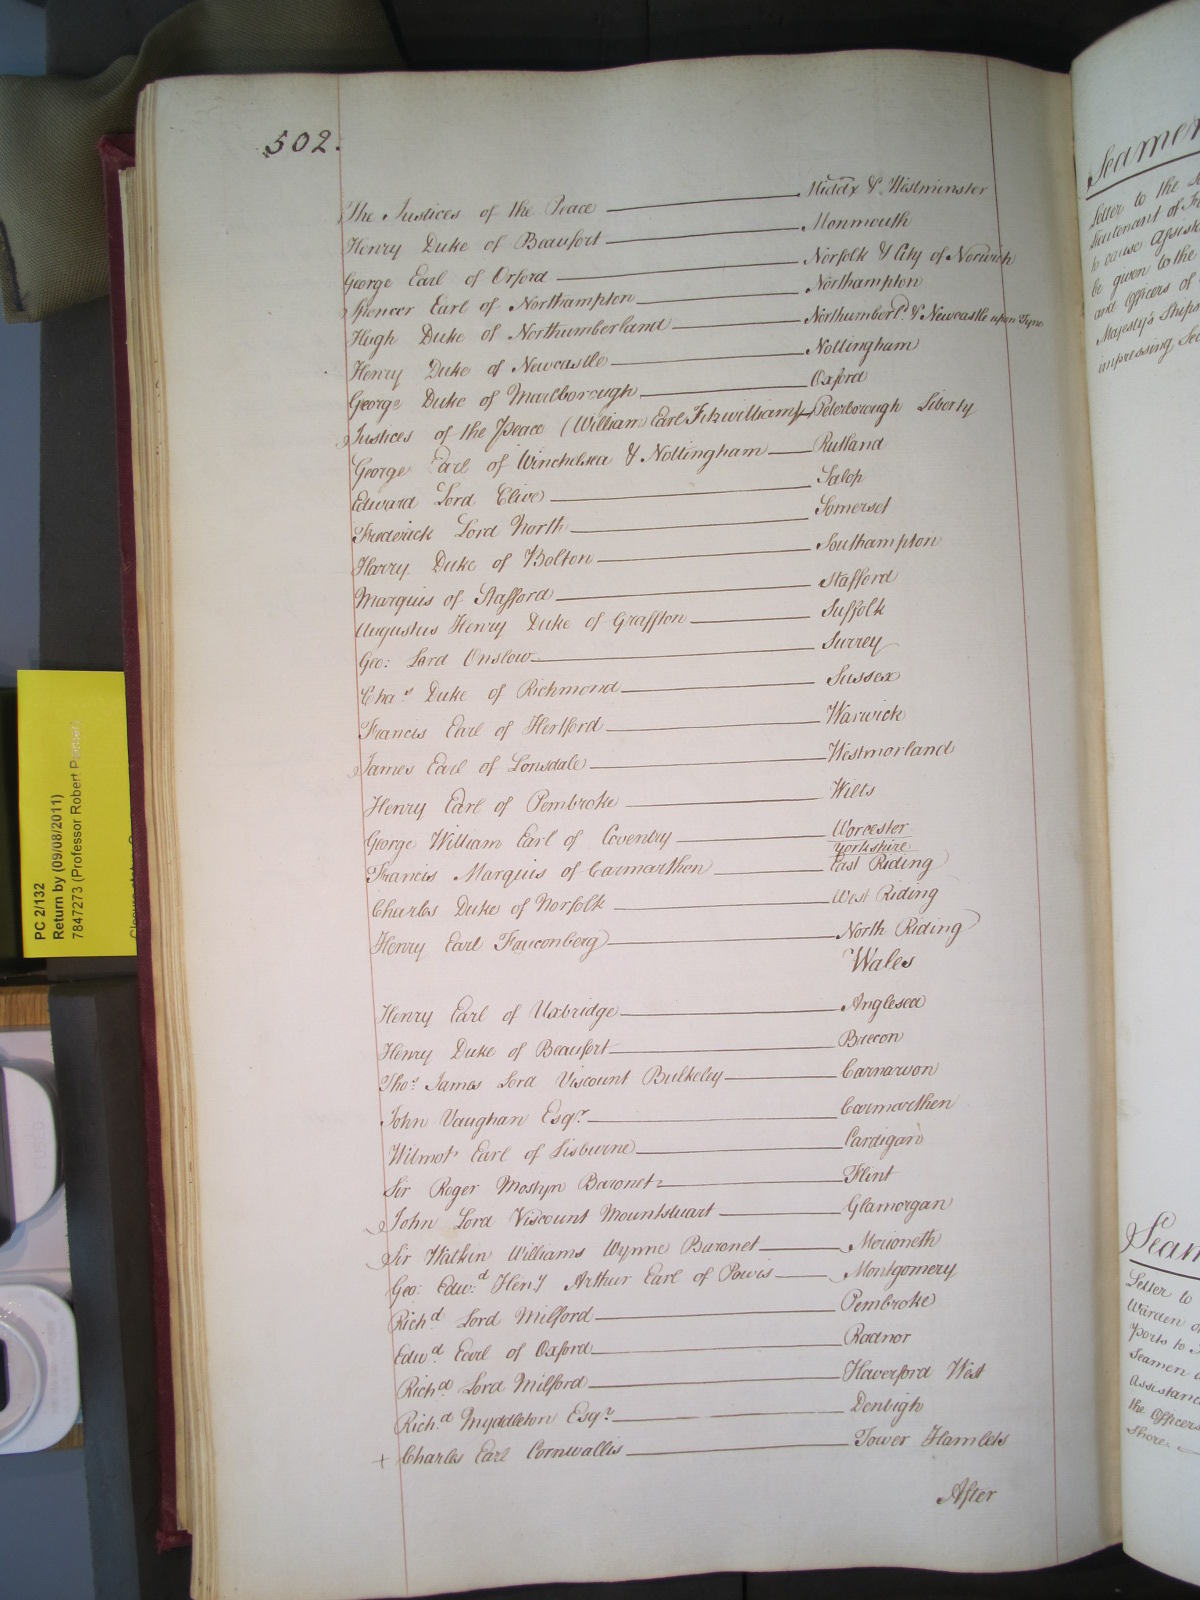 502.
The Justices of the Peace — Middx & Westminster
Henry Duke of Beaufort — Monmouth
George Earl of Orford — Norfolk & City of Norwich
Spencer Earl of Northampton — Northampton
Hugh Duke of Northumberland — Northumberld. & Newcastle upon Tyne
Henry Duke of Newcastle — Nottingham
George Duke of Marlborough — Oxford
Justices of the Peace (William Earl Fitzwilliam) — Peterborough Liberty
George Earl of Winchelsea & Nottingham — Rutland
Edward Lord Clive — Salop
Frederick Lord North — Somerset
Harry Duke of Bolton — Southampton
Marquis of Stafford — Stafford
Augustus Henry Duke of Graffton — Suffolk
Geo: Lord Onslow — Surrey
Chas. Duke of Richmond — Sussex
Francis Earl of Hertford — Warwick
James Earl of Lonsdale — Westmorland
Henry Earl of Pembroke — Wilts
George William Earl of Coventry — Worcester
Yorkshire
Francis Marquis of Carmarthen — East Riding
Charles Duke of Norfolk — West Riding
Henry Earl Fauconberg — North Riding
Wales
Henry Earl of Uxbridge — Anglesea
Henry Duke of Beaufort — Brecon
Thos. James Lord Viscount Bulkeley — Carnarvon
John Vaughan Esqr. — Carmarthen
Wilmot Earl of Lisburne — Cardigan
Sir Roger Mostyn Baronet — Flint
John Lord Viscount Mountstuart — Glamorgan
Sir Watkin Williams Wynne Baronet — Merioneth
Geo: Edwd. Heny. Arthur Earl of Powis — Montgomery
Richd. Lord Milford — Pembroke
Edwd. Earl of Oxford — Radnor
Richd. Lord Milford — Haverford West
Richd. Myddleton Esqr. — Denbigh
+ Charles Earl Cornwallis — Tower Hamlets
After
PC 2/132
Return by (09/08/2011)
7847273 (Professor Robert
Letter to the
Lieutenant of
to cause Assist
be given to the
and Officers of
Majesty's Ships
impressing Sea
Letter to
Warden of
Ports to
Seamen
Assistanc
the Officers
Shore.